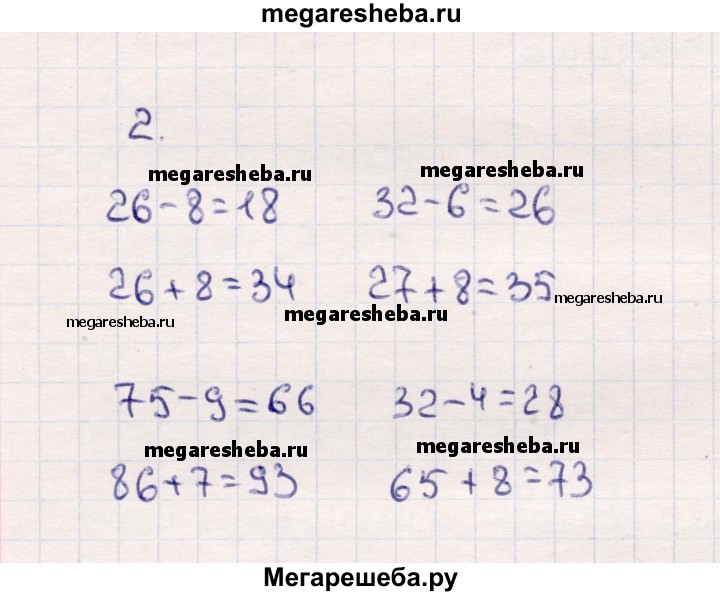 megaresheba.ru
2.
megaresheba.ru megaresheba.ru
26-8=18 32-6=26
26+8=34 27+8=35 megaresheba.ru
megaresheba.ru megaresheba.ru
75-9=66 32-4=28
megaresheba.ru megaresheba.ru
86+7=93 65+8=73
Мегарешеба.ру